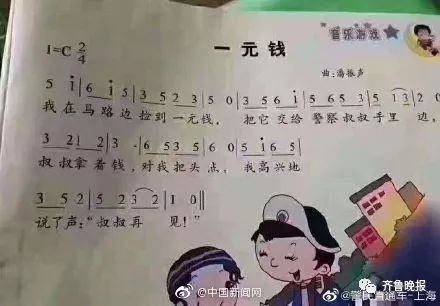 音乐游戏
1=C 2/4
一元钱
曲:潘振声
5 i | 6 i 5 | 3 5 2 3 | 5 0 | 3 5 6 i | 5 6 5 | 5 6 5 3 | 5 1 3 | 2 0
我在马路边捡到一元钱, 把它交给警察叔叔手里边,
3 2 1 2 | 3 — | 6 5 3 | 2 3 6 | — 0 | 5 i 6 5 |
叔叔拿着钱,对我把头点, 我高兴地
3 5 2 | 5 2 3 2 | 1 0 ‖
说了声:“叔叔再见!”
中国新闻网
齐鲁晚报
@警民直通车-上海